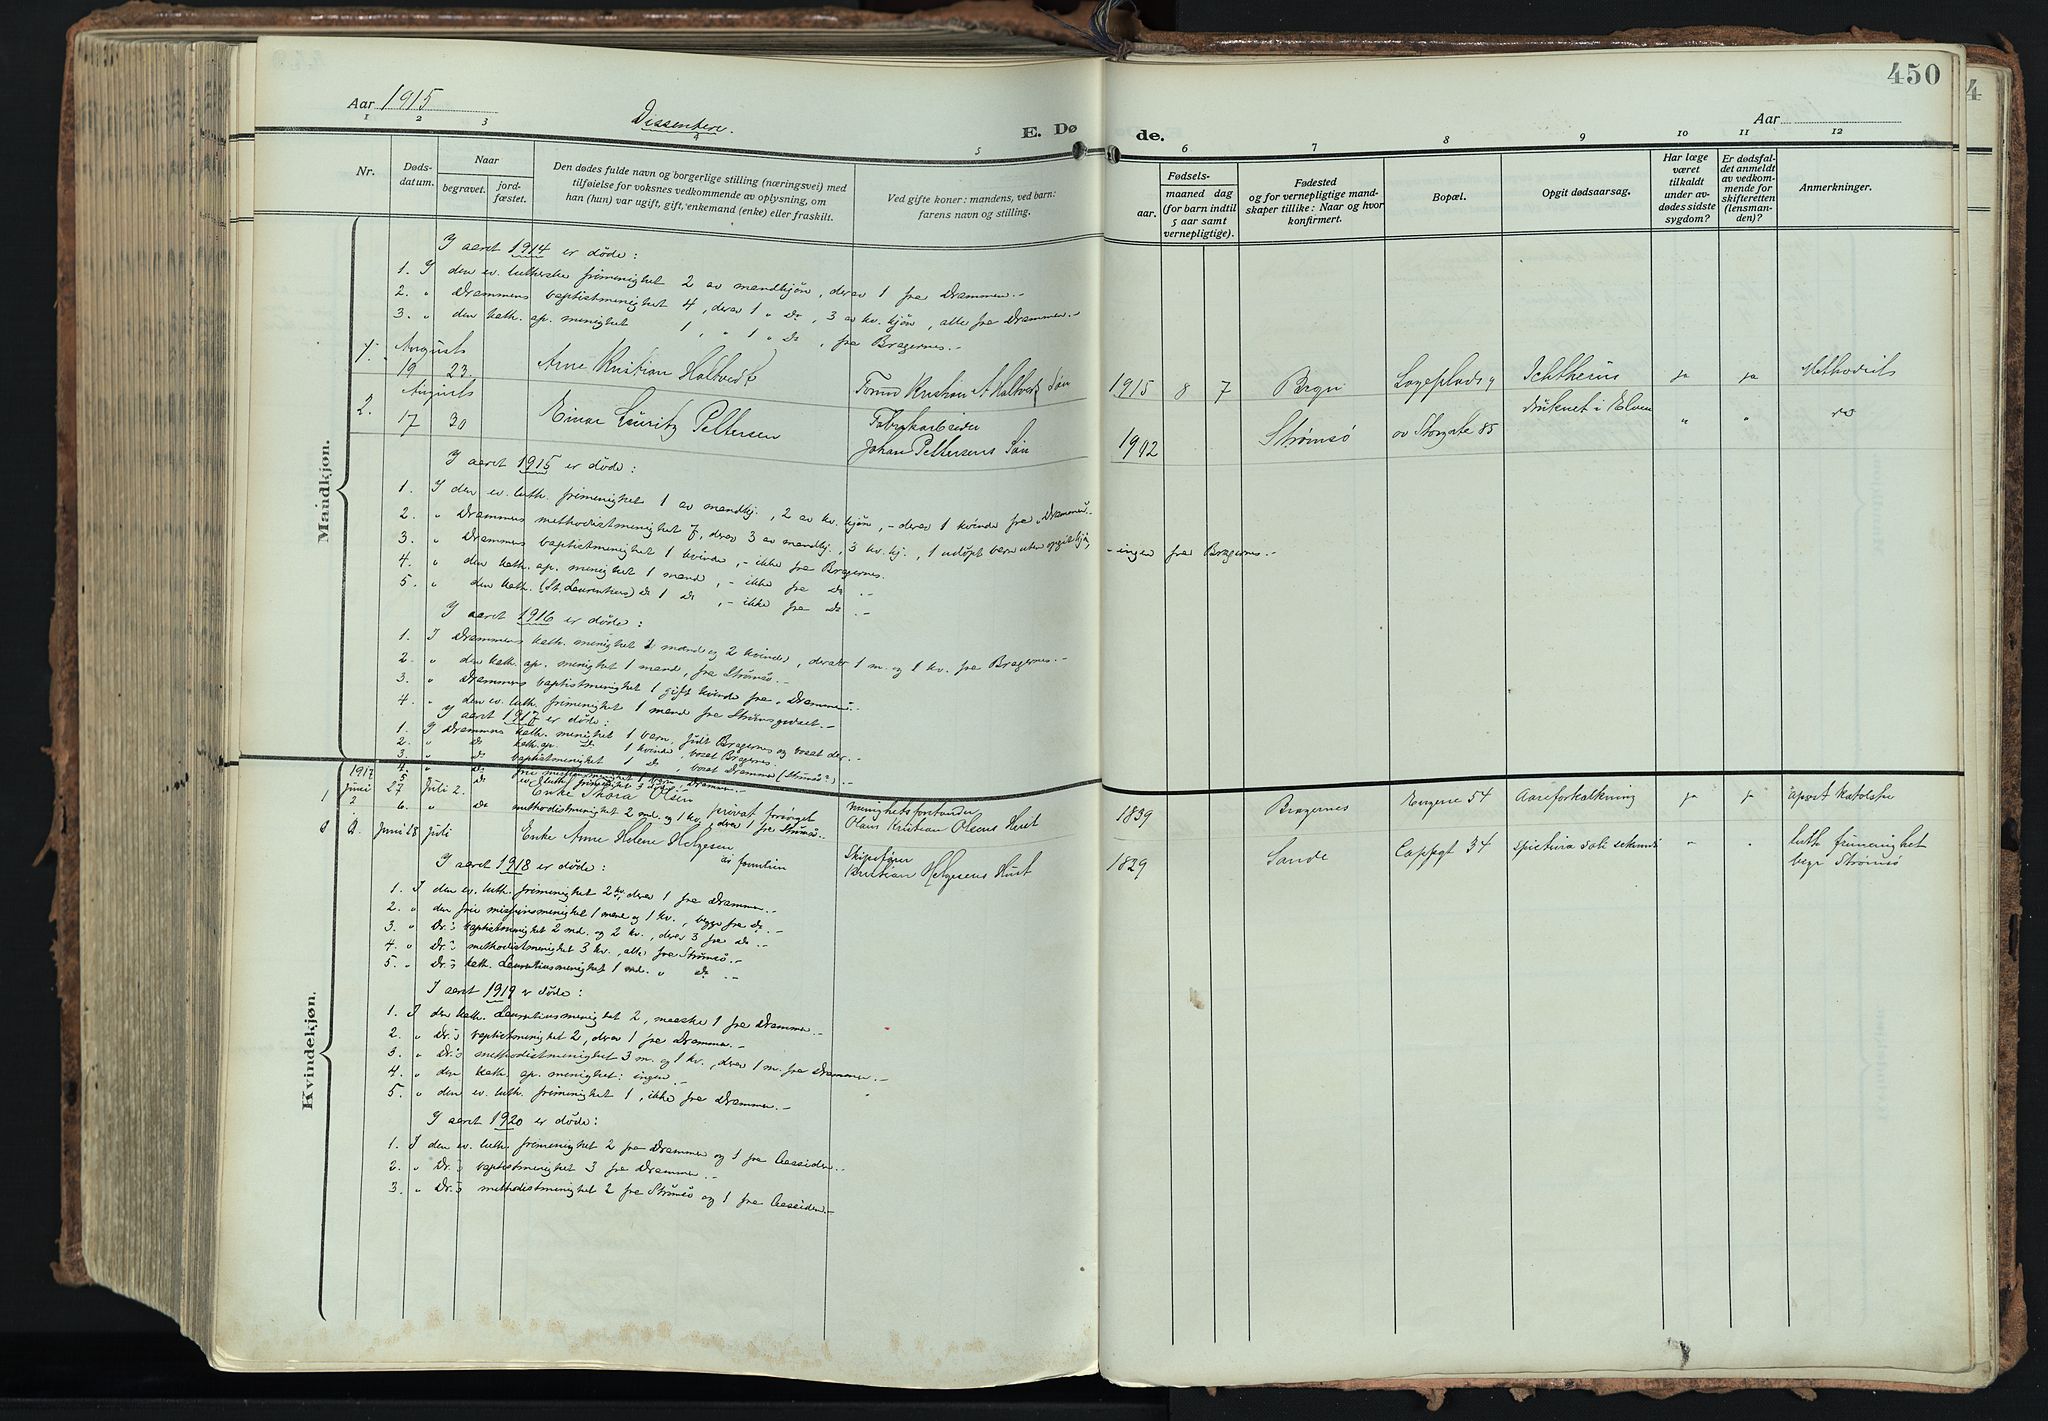 450
4
Aar 1915
Dissentere.
E. Dø
de.
Aar
1 2 3 4 5 6 7 8 9 10 11 12
Nr.
Døds-
datum.
Naar
begravet.
jord-
fæstet.
Den dødes fulde navn og borgerlige stilling (næringsvei) med
tilføielse for voksnes vedkommende av oplysning, om
han (hun) var ugift, gift, enkemand (enke) eller fraskilt.
Ved gifte koner: mandens, ved barn:
farens navn og stilling.
Fødsels-
aar.
maaned dag
(for barn indtil
5 aar samt
vernepligtige).
Fødested
og for vernepligtige mand-
skaper tillike: Naar og hvor
konfirmert.
Bopæl.
Opgit dødsaarsag.
Har læge
været
tilkaldt
under av-
dødes sidste
sygdom?
Er dødsfal-
det anmeldt
av vedkom-
mende for
skifteretten
(lensman-
den)?
Anmerkninger.
Mandkjøn.
I aaret 1914 er døde:
1. I den ev. lutherske frimenighet 2 av mandkjøn, derav 1 fra Drammen.-
2. " Drammens baptistmenighet 4, derav 1 " Do, 3 av kv. kjøn, alle fra Drammen.-
3. " den kath. ap. menighet 1 " 1 " Do, fra Bragernes.-
1. Augusts
19 23. Arne Kristian Holtvedt 1915 8 7 ja ja Methodist
2. Augusts
17 30 Einar Lauritz Pettersen Fabrikarbeider
Johan Pettersens Søn 1902 Strømsø Storgate 85 druknet i Elven " " Do
I aaret 1915 er døde:
1. I den ev. luth. frimenighet 1 av mandkj., 2 av kv. kjøn, - derav 1 kvinde fra "Drammen".
2. " Drammens methodistmenighet 7, derav 3 av mandkj., 3 kv. kj., 1 udøpt barn uten opgit kjøn, - ingen fra Bragernes.-
3. " Drammens baptistmenighet 1 kvinde, - ikke fra Bragernes.
4. " den kath. ap. menighet 1 mand, - ikke fra Do.-
5. " den kath. (St. Laurentius) Do 1 Do, - ikke fra Do.-
I aaret 1916 er døde:
1. I Drammens kath. menighet 2 mænd og 2 kvinder, derav 1 m. og 1 kv. fra Bragernes.-
2. " den kath. ap. menighet 1 mand, fra Strømsø.-
3. " Drammens baptistmenighet 1 gift kvinde fra "Drammen".-
4. " den ev. luth. frimenighet 1 mand fra Strømsgodset.-
I aaret 1917 er døde:
1. I Drammens kath. menighet 1 barn, født Bragernes og bosat der.-
2. " Do kath. ap. Do 1 kvinde, bosat Bragernes.
3. " Do baptistmenighet 1 Do, bosat Drammen (Strømsø?).-
4. " Do fri missionsmenighet 1
5. " Do ev. luth. frimenighet 3
6. " Do methodistmenighet 2 md. og 1 kv., derav 1 fra Strømsø.-
Kvindekjøn.
1917
1 Juni 27 Juli 2. Enke Thora Olsen
privat forsørget Menighetsforstander
Olaus Kristian Olsens Hust 1839 Bragernes Engene 54 Aareforkalkning ja ja apost Katolske
2 Juni 28 Juli Enke Anne Helene Helgesen
av familien Skipsfører
Helgesens Hust 1829 Sande Cappegt 34 " " luth frimenighet
begr Strømsø
I aaret 1918 er døde:
1. I den ev. luth. frimenighet 2 kv., derav 1 fra Drammen.-
2. " den frie missionsmenighet 1 mand og 1 kv., begge fra Do.-
3. " Dr.'s baptistmenighet 2 md. og 2 kv., derav 3 fra Do.-
4. " Dr.'s methodistmenighet 3 kv., alle fra Strømsø.-
5. " Dr.'s kath. Laurentiusmenighet 1 md. " Do.-
I aaret 1919 er døde:
1. I den kath. Laurentiusmenighet 2, maaske 1 fra Drammen.-
2. " Dr.'s baptistmenighet 2, derav 1 fra Drammen.-
3. " Dr.'s methodistmenighet 3 m. og 1 kv., derav 1 m. fra Drammen.-
4. " den kath. ap. menighet: ingen.-
5. " den ev. luth. frimenighet 1, ikke fra Drammen.-
I aaret 1920 er døde:
1. I den ev. luth. frimenighet 2 fra Drammen og 1 fra Aassiden.-
2. " Dr.'s baptistmenighet 3 fra Drammen.-
3. " Dr.'s methodistmenighet 2 fra Strømsø og 1 fra Aassiden.-